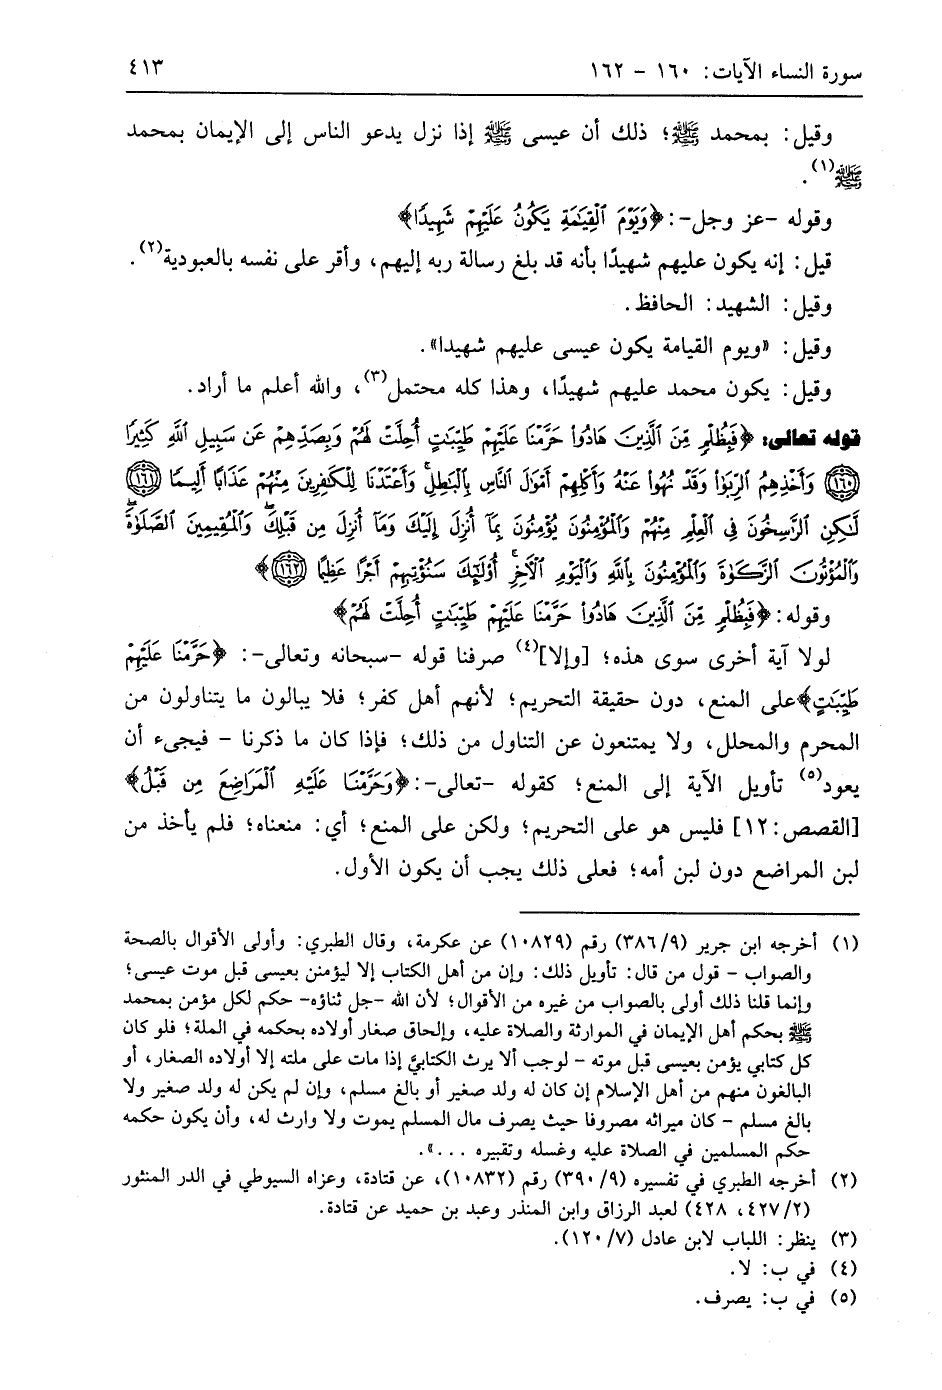 سورة النساء الآيات: ١٦٠ - ١٦٢ ٤١٣
وقيل: بمحمد ﷺ؛ ذلك أن عيسى ﷺ إذا نزل يدعو الناس إلى الإيمان بمحمد
ﷺ(١).
وقوله -عز وجل-: ﴿وَيَوْمَ ٱلْقِيَٰمَةِ يَكُونُ عَلَيْهِمْ شَهِيدًا﴾
قيل: إنه يكون عليهم شهيدًا بأنه قد بلغ رسالة ربه إليهم، وأقر على نفسه بالعبودية(٢).
وقيل: الشهيد: الحافظ.
وقيل: «ويوم القيامة يكون عيسى عليهم شهيدا».
وقيل: يكون محمد عليهم شهيدًا، وهذا كله محتمل(٣)، والله أعلم ما أراد.
قوله تعالى: ﴿فَبِظُلْمٍ مِّنَ ٱلَّذِينَ هَادُوا۟ حَرَّمْنَا عَلَيْهِمْ طَيِّبَٰتٍ أُحِلَّتْ لَهُمْ وَبِصَدِّهِمْ عَن سَبِيلِ ٱللَّهِ كَثِيرًا
﴿١٦٠﴾ وَأَخْذِهِمُ ٱلرِّبَوٰا۟ وَقَدْ نُهُوا۟ عَنْهُ وَأَكْلِهِمْ أَمْوَٰلَ ٱلنَّاسِ بِٱلْبَٰطِلِ ۚ وَأَعْتَدْنَا لِلْكَٰفِرِينَ مِنْهُمْ عَذَابًا أَلِيمًا ﴿١٦١﴾
لَّٰكِنِ ٱلرَّٰسِخُونَ فِى ٱلْعِلْمِ مِنْهُمْ وَٱلْمُؤْمِنُونَ يُؤْمِنُونَ بِمَآ أُنزِلَ إِلَيْكَ وَمَآ أُنزِلَ مِن قَبْلِكَ ۚ وَٱلْمُقِيمِينَ ٱلصَّلَوٰةَ ۚ
وَٱلْمُؤْتُونَ ٱلزَّكَوٰةَ وَٱلْمُؤْمِنُونَ بِٱللَّهِ وَٱلْيَوْمِ ٱلْءَاخِرِ ۚ أُو۟لَٰٓئِكَ سَنُؤْتِيهِمْ أَجْرًا عَظِيمًا ﴿١٦٢﴾﴾
وقوله: ﴿فَبِظُلْمٍ مِّنَ ٱلَّذِينَ هَادُوا۟ حَرَّمْنَا عَلَيْهِمْ طَيِّبَٰتٍ أُحِلَّتْ لَهُمْ﴾
لولا آية أخرى سوى هذه؛ [وإلا](٤) صرفنا قوله -سبحانه وتعالى-: ﴿حَرَّمْنَا عَلَيْهِمْ
طَيِّبَٰتٍ﴾على المنع، دون حقيقة التحريم؛ لأنهم أهل كفر؛ فلا يبالون ما يتناولون من
المحرم والمحلل، ولا يمتنعون عن التناول من ذلك؛ فإذا كان ما ذكرنا - فيجىء أن
يعود(٥) تأويل الآية إلى المنع؛ كقوله -تعالى-: ﴿وَحَرَّمْنَا عَلَيْهِ ٱلْمَرَاضِعَ مِن قَبْلُ﴾
[القصص: ١٢] فليس هو على التحريم؛ ولكن على المنع؛ أي: منعناه؛ فلم يأخذ من
لبن المراضع دون لبن أمه؛ فعلى ذلك يجب أن يكون الأول.
(١) أخرجه ابن جرير (٣٨٦/٩) رقم (١٠٨٢٩) عن عكرمة، وقال الطبري: وأولى الأقوال بالصحة
والصواب - قول من قال: تأويل ذلك: وإن من أهل الكتاب إلا ليؤمنن بعيسى قبل موت عيسى؛
وإنما قلنا ذلك أولى بالصواب من غيره من الأقوال؛ لأن الله -جل ثناؤه- حكم لكل مؤمن بمحمد
ﷺ بحكم أهل الإيمان في الموارثة والصلاة عليه، وإلحاق صغار أولاده بحكمه في الملة؛ فلو كان
كل كتابي يؤمن بعيسى قبل موته - لوجب ألا يرث الكتابيَّ إذا مات على ملته إلا أولاده الصغار، أو
البالغون منهم من أهل الإسلام إن كان له ولد صغير أو بالغ مسلم، وإن لم يكن له ولد صغير ولا
بالغ مسلم - كان ميراثه مصروفا حيث يصرف مال المسلم يموت ولا وارث له، وأن يكون حكمه
حكم المسلمين في الصلاة عليه وغسله وتقبيره ...».
(٢) أخرجه الطبري في تفسيره (٣٩٠/٩) رقم (١٠٨٣٢)، عن قتادة، وعزاه السيوطي في الدر المنثور
(٤٢٧/٢، ٤٢٨) لعبد الرزاق وابن المنذر وعبد بن حميد عن قتادة.
(٣) ينظر: اللباب لابن عادل (١٢٠/٧).
(٤) في ب: لا.
(٥) في ب: يصرف.